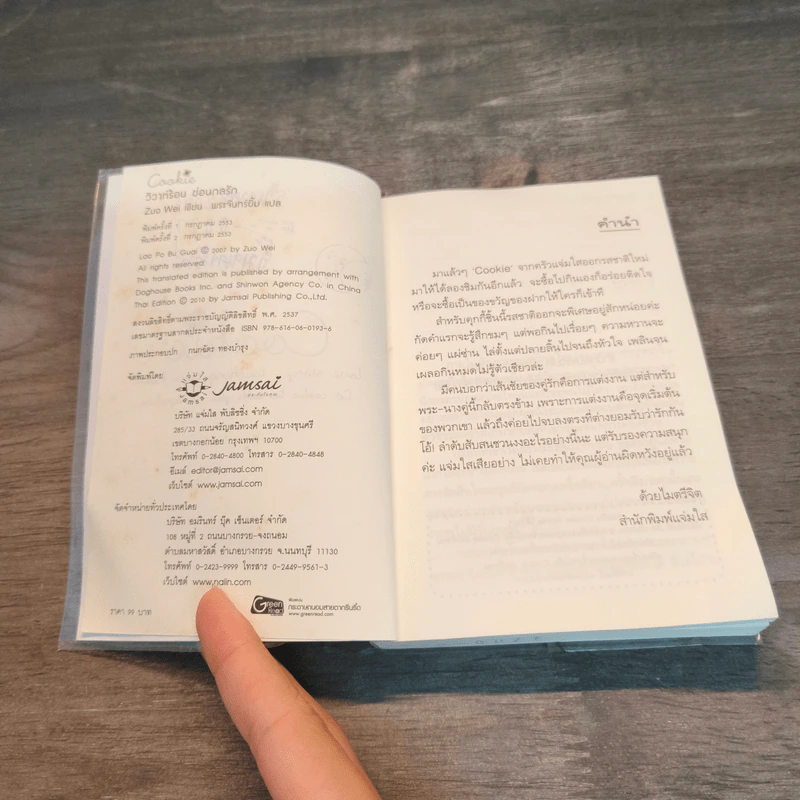 Cookie
วิวาห์ร้อน ซ่อนกลรัก
Zuo Wei เขียน พระจันทร์ยิ้ม แปล
พิมพ์ครั้งที่ 1 กรกฎาคม 2553
พิมพ์ครั้งที่ 2 กรกฎาคม 2553
Lao Po Bu Guai © 2007 by Zuo Wei
All rights reserved
This translated edition is published by arrangement with
Doghouse Books Inc. and Shinwon Agency Co. in China
Thai Edition © 2010 by Jamsai Publishing Co.,Ltd.
สงวนลิขสิทธิ์ตามพระราชบัญญัติลิขสิทธิ์ พ.ศ. 2537
เลขมาตรฐานสากลประจำหนังสือ ISBN 978-616-06-0193-6
ภาพประกอบปก กนกฉัตร ทองบำรุง
จัดพิมพ์โดย
jamsai
บริษัท แจ่มใส พับลิชชิ่ง จำกัด
285/33 ถนนจรัญสนิทวงศ์ แขวงบางขุนศรี
เขตบางกอกน้อย กรุงเทพฯ 10700
โทรศัพท์ 0-2840-4800 โทรสาร 0-2840-4848
อีเมล์ editor@jamsai.com
เว็บไซต์ www.jamsai.com
จัดจำหน่ายทั่วประเทศโดย
บริษัท อมรินทร์ บุ๊ค เซ็นเตอร์ จำกัด
108 หมู่ที่ 2 ถนนบางกรวย-จงถนอม
ตำบลมหาสวัสดิ์ อำเภอบางกรวย จ.นนทบุรี 11130
โทรศัพท์ 0-2423-9999 โทรสาร 0-2449-9561-3
เว็บไซต์ www.naiin.com
ราคา 99 บาท
Green Read
พิมพ์บน
กระดาษถนอมสายตากรีนรี้ด
www.greenread.com
คำนำ
มาแล้วๆ 'Cookie' จากครัวแจ่มใสออกรสชาติใหม่
มาให้ได้ลองชิมกันอีกแล้ว จะซื้อไปกินเองก็อร่อยติดใจ
หรือจะซื้อเป็นของขวัญของฝากให้ใครก็เข้าที
สำหรับคุกกี้ชิ้นนี้รสชาติออกจะพิเศษอยู่สักหน่อยค่ะ
กัดคำแรกจะรู้สึกขมๆ แต่พอกินไปเรื่อยๆ ความหวานจะ
ค่อยๆ แผ่ซ่าน ไล่ตั้งแต่ปลายลิ้นไปจนถึงหัวใจ เพลินจน
เผลอกินหมดไม่รู้ตัวเชียวล่ะ
มีคนบอกว่าเส้นชัยของคู่รักคือการแต่งงาน แต่สำหรับ
พระ-นางคู่นี้กลับตรงข้าม เพราะการแต่งงานคือจุดเริ่มต้น
ของพวกเขา แล้วถึงค่อยไปจบลงตรงที่ต่างยอมรับว่ารักกัน
โอ้! ลำดับสับสนชวนงงอะไรอย่างนี้นะ แต่รับรองความสนุก
ค่ะ แจ่มใสเสียอย่าง ไม่เคยทำให้คุณผู้อ่านผิดหวังอยู่แล้ว
ด้วยไมตรีจิต
สำนักพิมพ์แจ่มใส